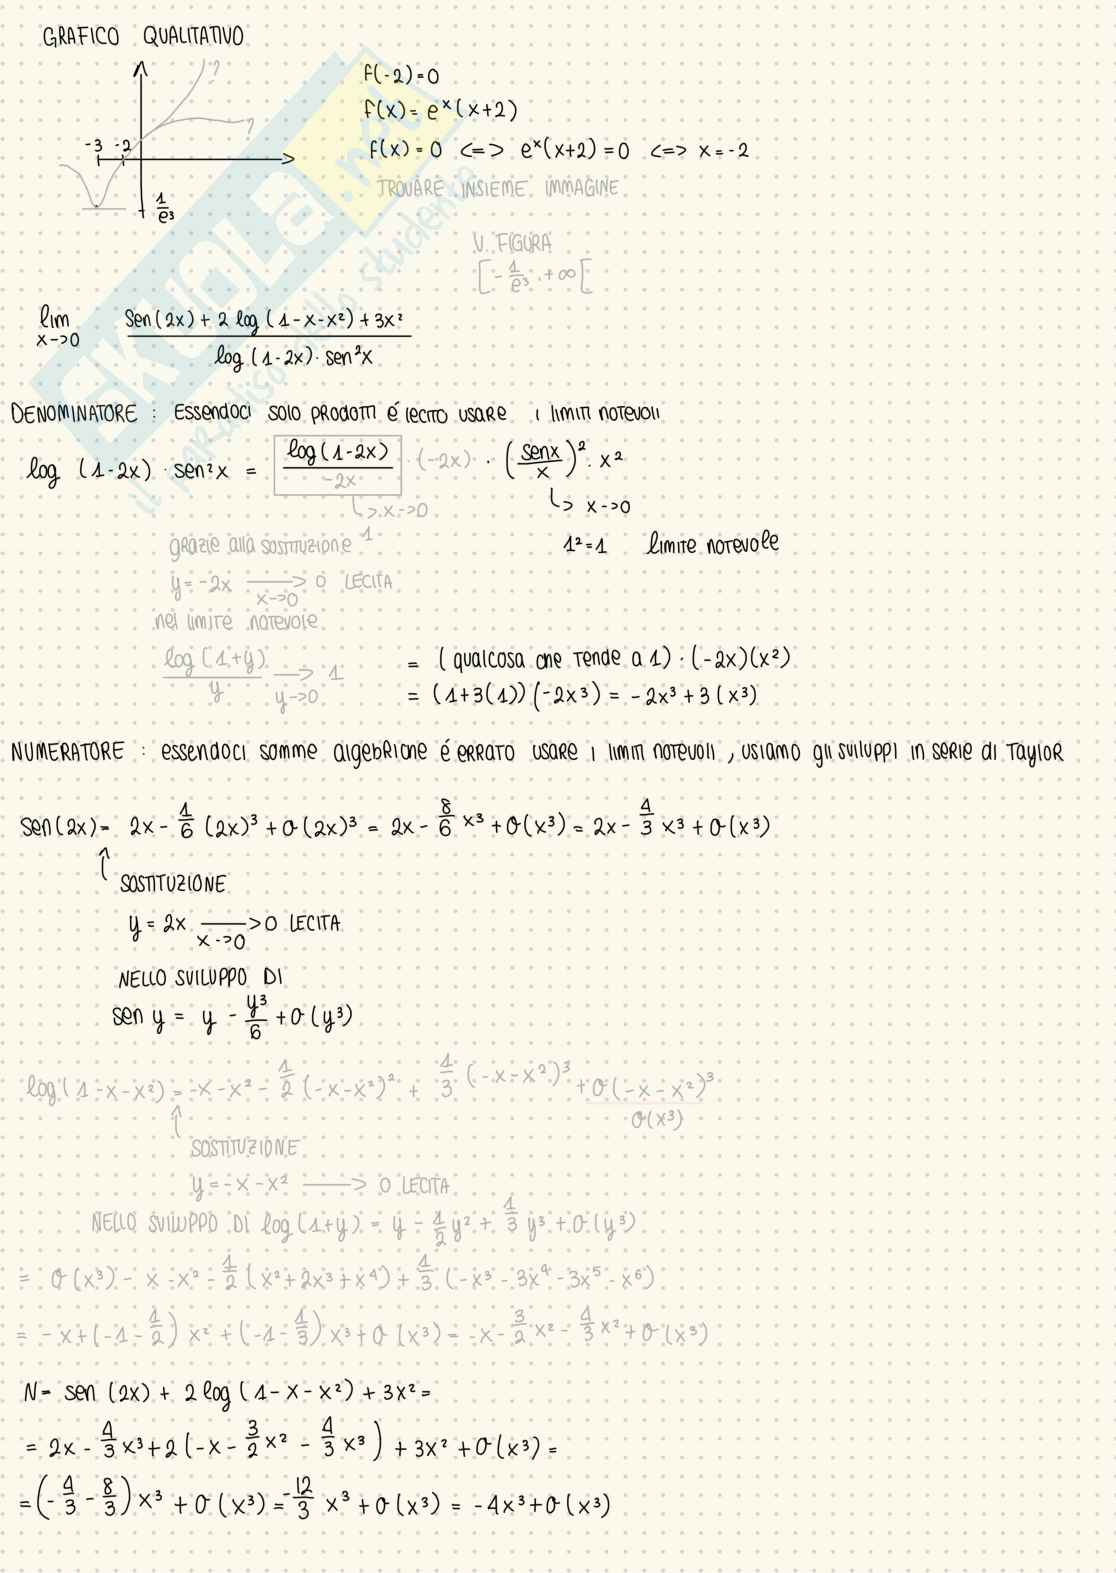 GRAFICO QUALITATIVO
?
?
-3 -2
1/e³
f(-2)=0
f(x)= eˣ(x+2)
f(x)=0 <=> eˣ(x+2)=0 <=> x=-2
TROVARE INSIEME IMMAGINE
V. FIGURA
[-1/e³, +∞[
lim x->0 (sen(2x) + 2 log(1-x-x²) + 3x²) / (log(1-2x)· sen²x)
DENOMINATORE : Essendoci solo prodotti é lecito usare i limiti notevoli
log (1-2x) · sen²x = log(1-2x)/(-2x) · (-2x) · (senx/x)² · x²
↳ x->0 ↳ x->0
1 1²=1 limite notevole
grazie alla sostituzione
y=-2x ——> x->0 0 LECITA
nel limite notevole
log(1+y)/y —> y->0 1
= (qualcosa che tende a 1) · (-2x)(x²)
= (1+3(1))(-2x³) = -2x³+3(x³)
NUMERATORE : essendoci somme algebriche é errato usare i limiti notevoli, usiamo gli sviluppi in serie di Taylor
sen(2x)= 2x - 1/6 (2x)³ + o(2x)³ = 2x - 8/6 x³ + o(x³) = 2x - 4/3 x³ + o(x³)
↑ SOSTITUZIONE
y = 2x ——> x->0 0 LECITA
NELLO SVILUPPO DI
sen y = y - y³/6 + o(y³)
log(1-x-x²) = -x-x² - 1/2 (-x-x²)² + 1/3 (-x-x²)³ + o(-x-x²)³
o(x³)
↑ SOSTITUZIONE
y=-x-x² ——> 0 LECITA
NELLO SVILUPPO DI log(1+y) = y - 1/2 y² + 1/3 y³ + o(y³)
= o(x³) - x - x² - 1/2 (x²+2x³+x⁴) + 1/3 (-x³-3x⁴-3x⁵-x⁶)
= -x+(-1-1/2) x² + (-1-1/3) x³ + o(x³) = -x - 3/2 x² - 4/3 x² + o(x³)
N= sen (2x) + 2 log (1-x-x²) + 3x² =
= 2x - 4/3 x³ + 2 (-x - 3/2 x² - 4/3 x³) + 3x² + o(x³) =
= (-4/3 - 8/3) x³ + o(x³) = -12/3 x³ + o(x³) = -4x³+o(x³)
SKUOLA.net
il paradiso dello studente